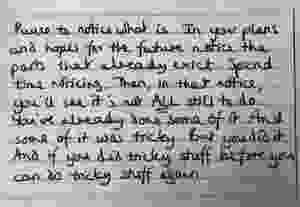 Pause to notice what is. In your plans
and hopes for the future notice the
parts that already exist. Spend
time noticing. Then, in that notice,
you'll see it's not ALL still to do.
You've already done some of it. And
some of it was tricky. But you did it.
And if you did tricky stuff before you
can do tricky stuff again.